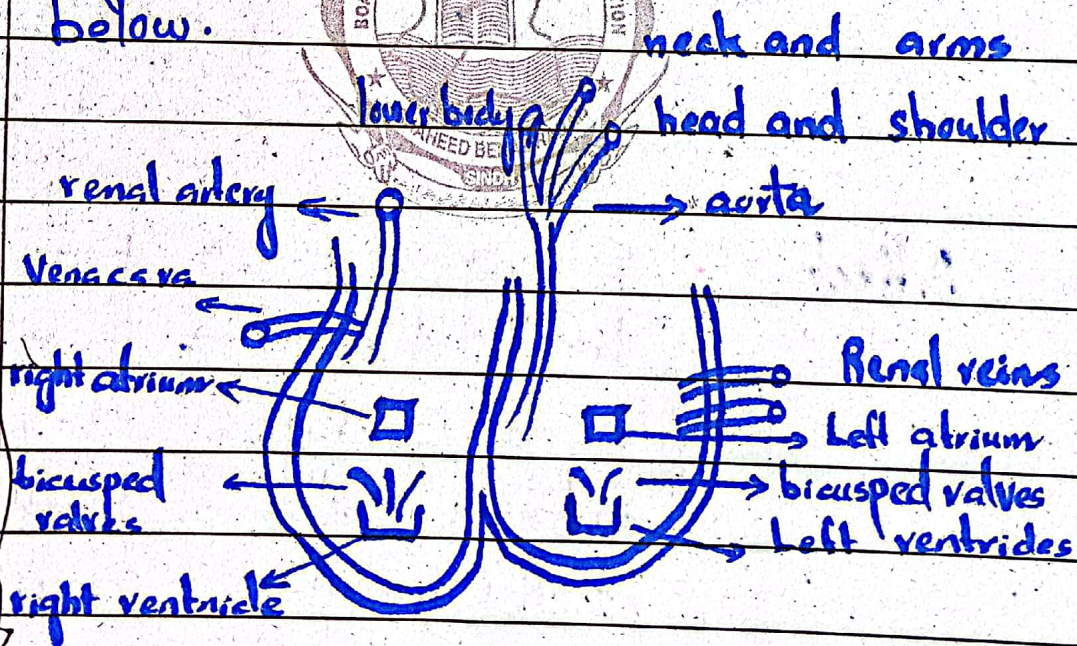 below.
neck and arms
lower body
head and shoulder
renal artery
aorta
Venacava
right atrium
Renal veins
Left atrium
bicusped
valves
bicusped valves
Left ventrides
right ventricle
SINDH